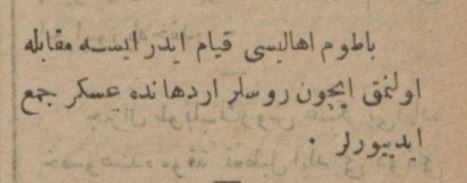 باطوم اهالیسی قیام ایدر ایسه مقابله
اولنمق ایچون روسلر اردهانده عسکر جمع
ایدییورلر .